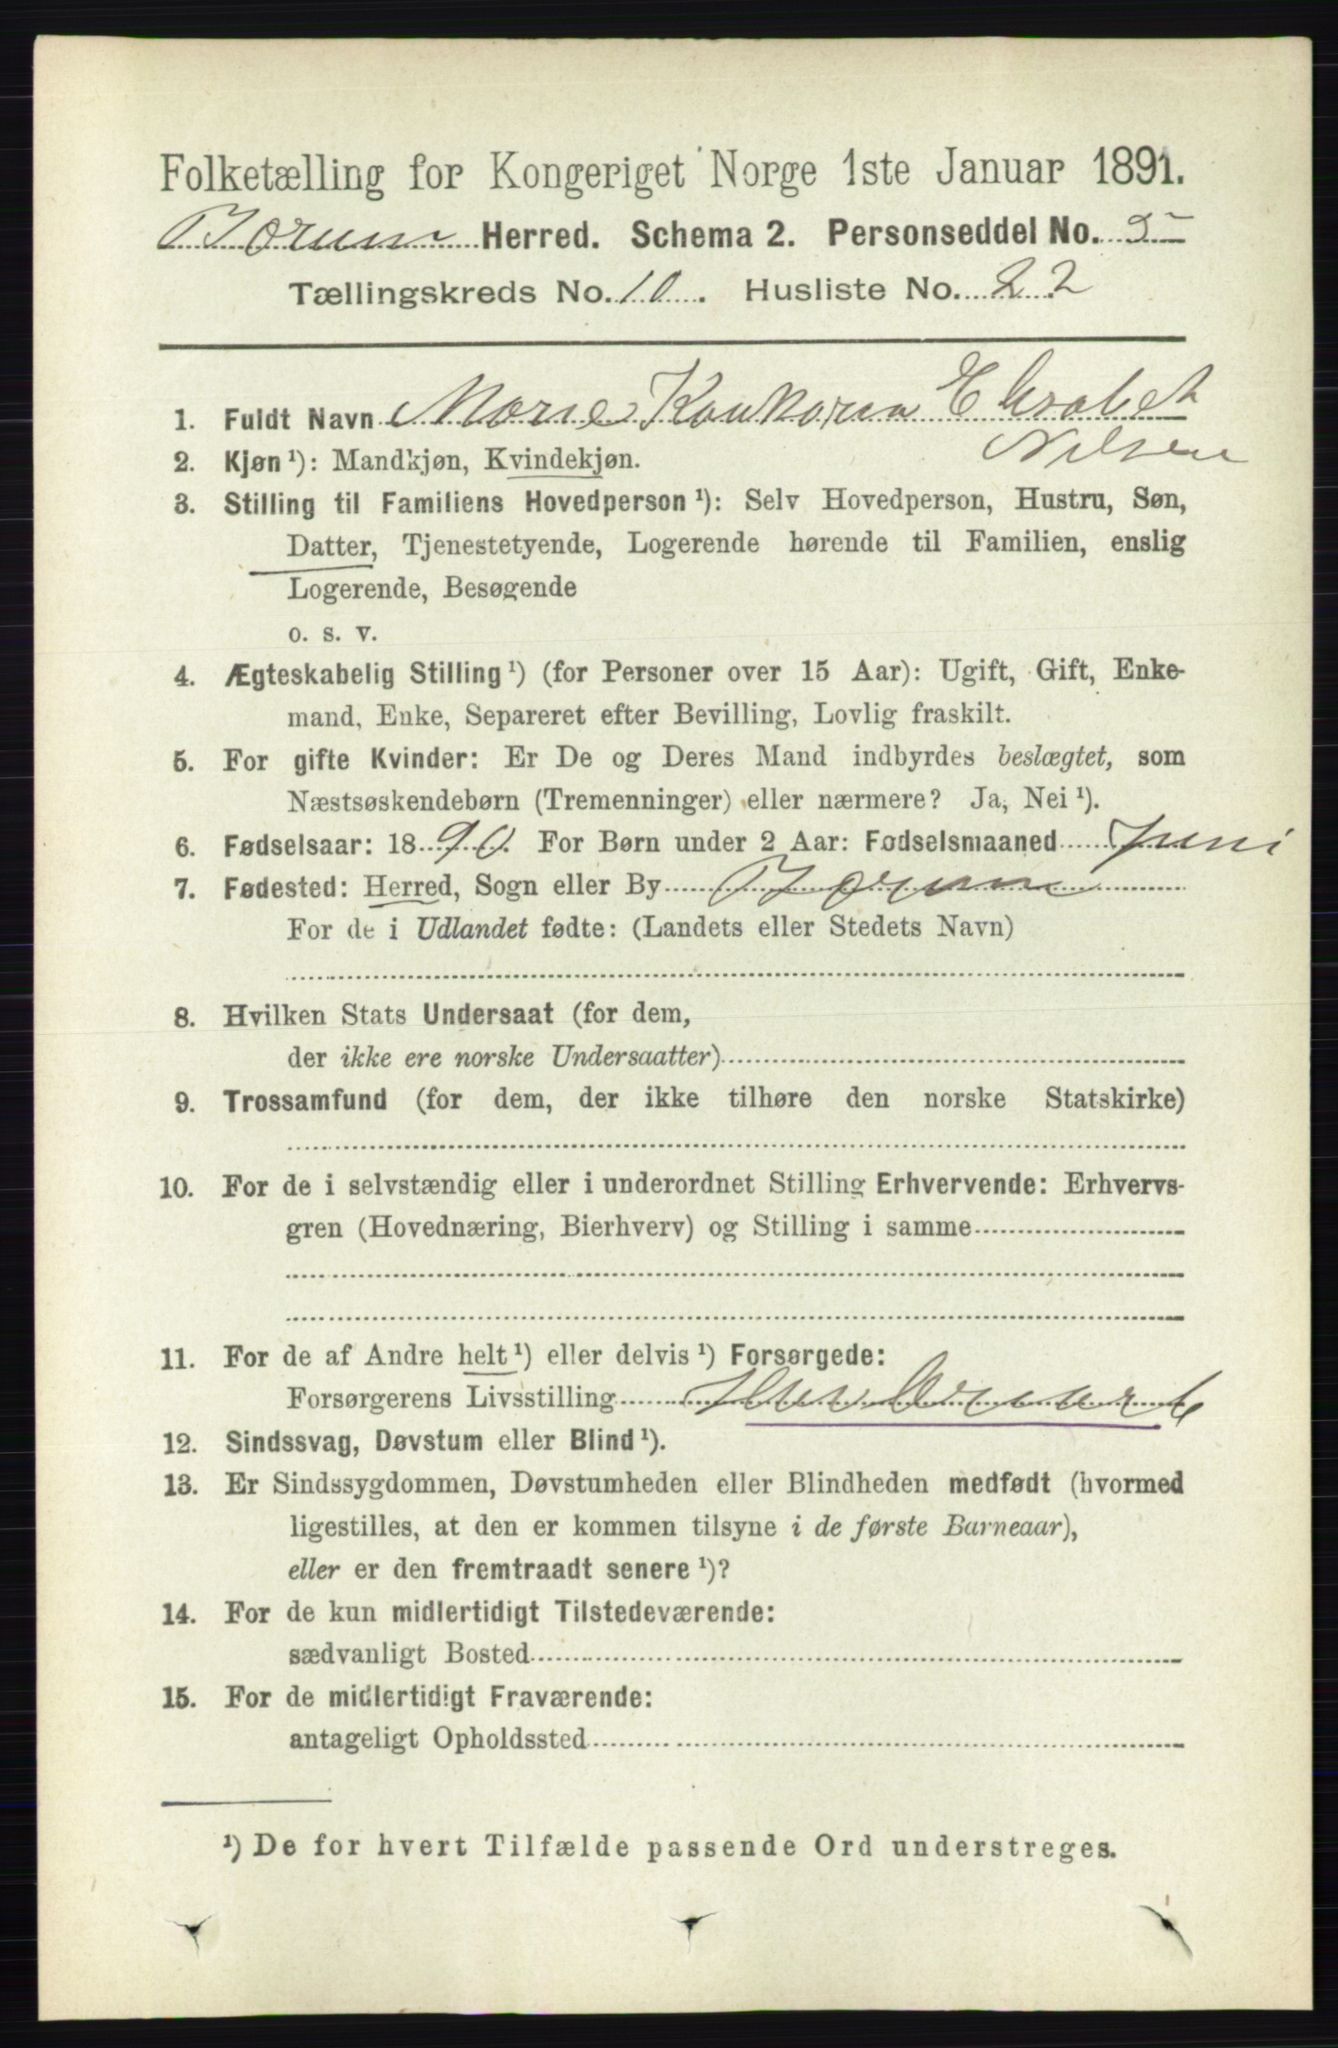 Folketælling for Kongeriget Norge 1ste Januar 1891.
Børum Herred. Schema 2. Personseddel No. 5
Tællingskreds No. 10. Husliste No. 22
1. Fuldt Navn Marie Elisabet
Nilsen
2. Kjøn ¹): Mandkjøn, Kvindekjøn.
3. Stilling til Familiens Hovedperson ¹): Selv Hovedperson, Hustru, Søn,
Datter, Tjenestetyende, Logerende hørende til Familien, enslig
Logerende, Besøgende
o. s. v.
4. Ægteskabelig Stilling ¹) (for Personer over 15 Aar): Ugift, Gift, Enke-
mand, Enke, Separeret efter Bevilling, Lovlig fraskilt.
5. For gifte Kvinder: Er De og Deres Mand indbyrdes beslægtet, som
Næstsøskendebørn (Tremenninger) eller nærmere? Ja, Nei ¹).
6. Fødselsaar: 1890. For Børn under 2 Aar: Fødselsmaaned Juni
7. Fødested: Herred, Sogn eller By Børum
For de i Udlandet fødte: (Landets eller Stedets Navn)
8. Hvilken Stats Undersaat (for dem,
der ikke ere norske Undersaatter)
9. Trossamfund (for dem, der ikke tilhøre den norske Statskirke)
10. For de i selvstændig eller i underordnet Stilling Erhvervende: Erhvervs-
gren (Hovednæring, Bierhverv) og Stilling i samme
11. For de af Andre helt ¹) eller delvis ¹) Forsørgede:
Forsørgerens Livsstilling
12. Sindssvag, Døvstum eller Blind ¹).
13. Er Sindssygdommen, Døvstumheden eller Blindheden medfødt (hvormed
ligestilles, at den er kommen tilsyne i de første Barneaar),
eller er den fremtraadt senere ¹)?
14. For de kun midlertidigt Tilstedeværende:
sædvanligt Bosted
15. For de midlertidigt Fraværende:
antageligt Opholdssted
¹) De for hvert Tilfælde passende Ord understreges.